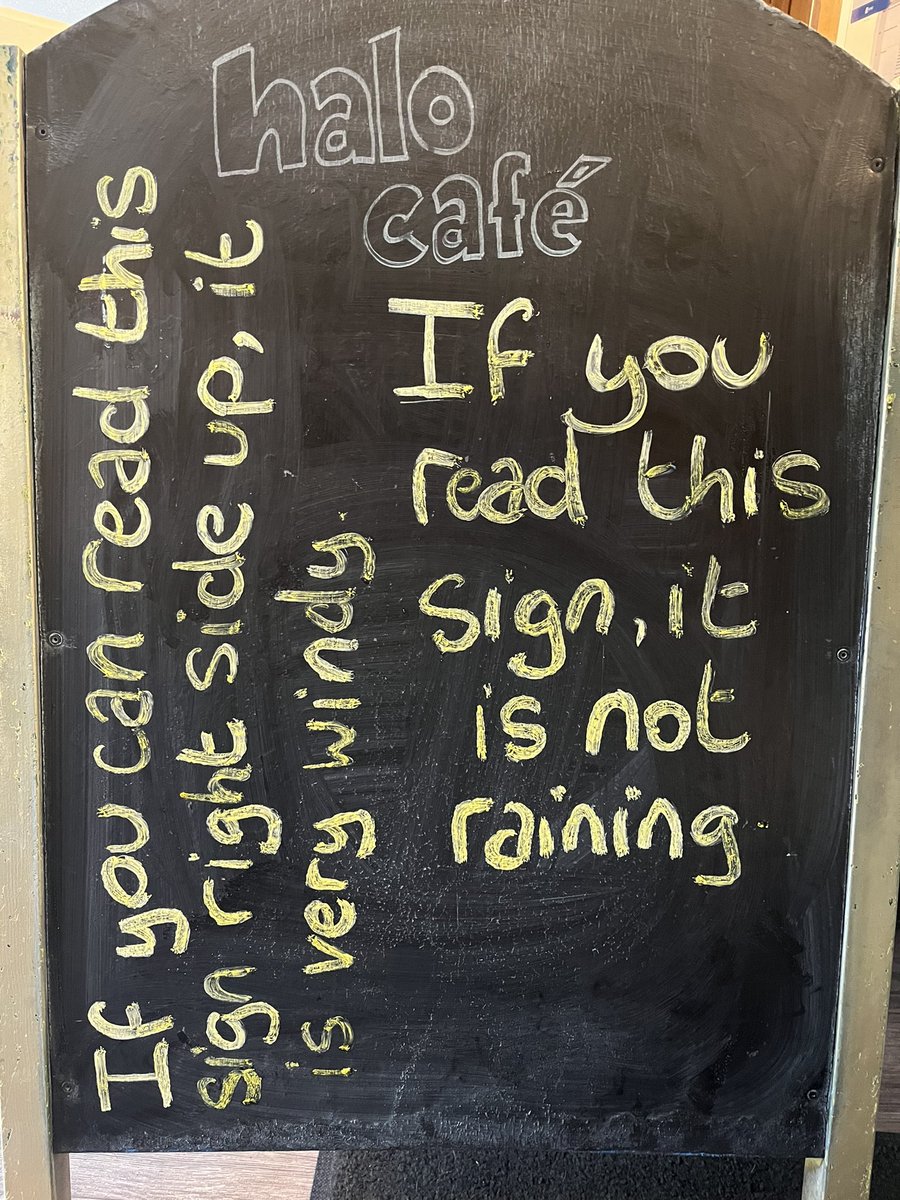 halo
café
If you
read this
sign, it
is not
raining
If you can read this
sign right side up, it
is very windy